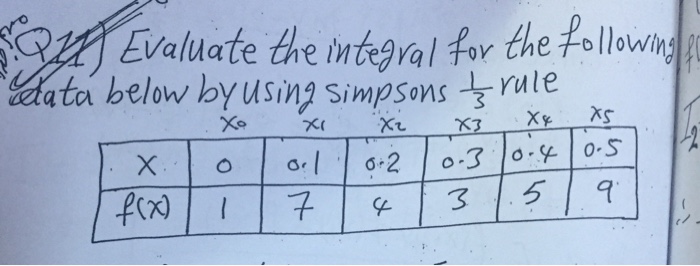 Q11) Evaluate the integral for the following
data below by using simpsons 1/3 rule
x0 x1 x2 x3 x4 x5
x 0 0.1 0.2 0.3 0.4 0.5
f(x) 1 7 4 3 5 9